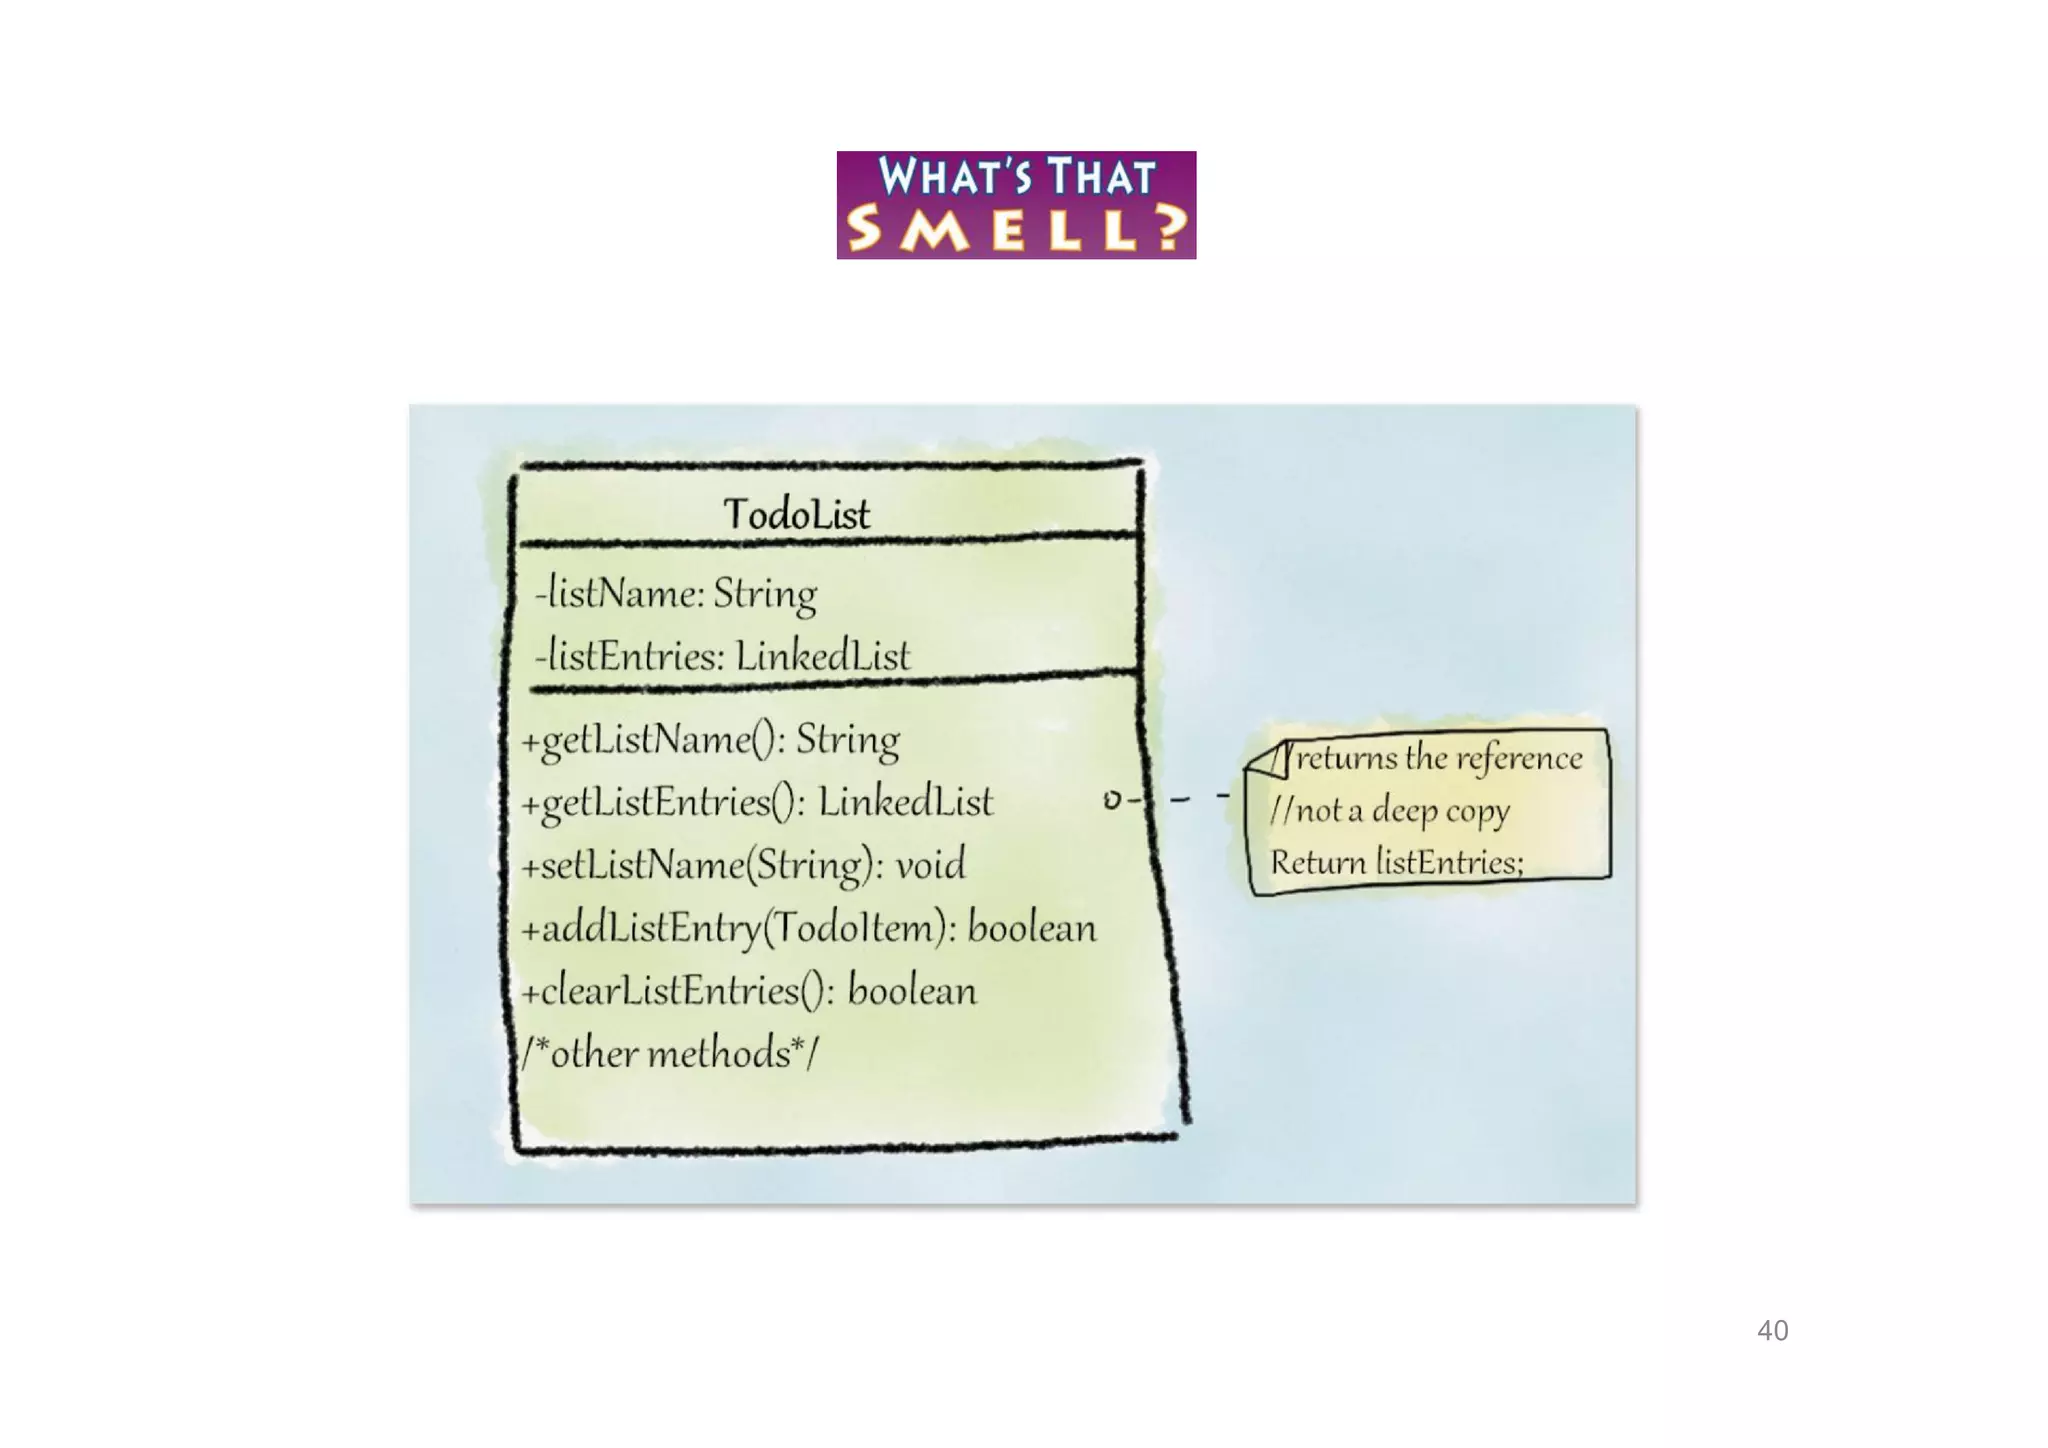 WHAT'S THAT
SMELL?
TodoList
-listName: String
-listEntries: LinkedList
+getListName(): String
+getListEntries(): LinkedList
+setListName(String): void
+addListEntry(TodoItem): boolean
+clearListEntries(): boolean
/*other methods*/
//returns the reference
//not a deep copy
Return listEntries;
40